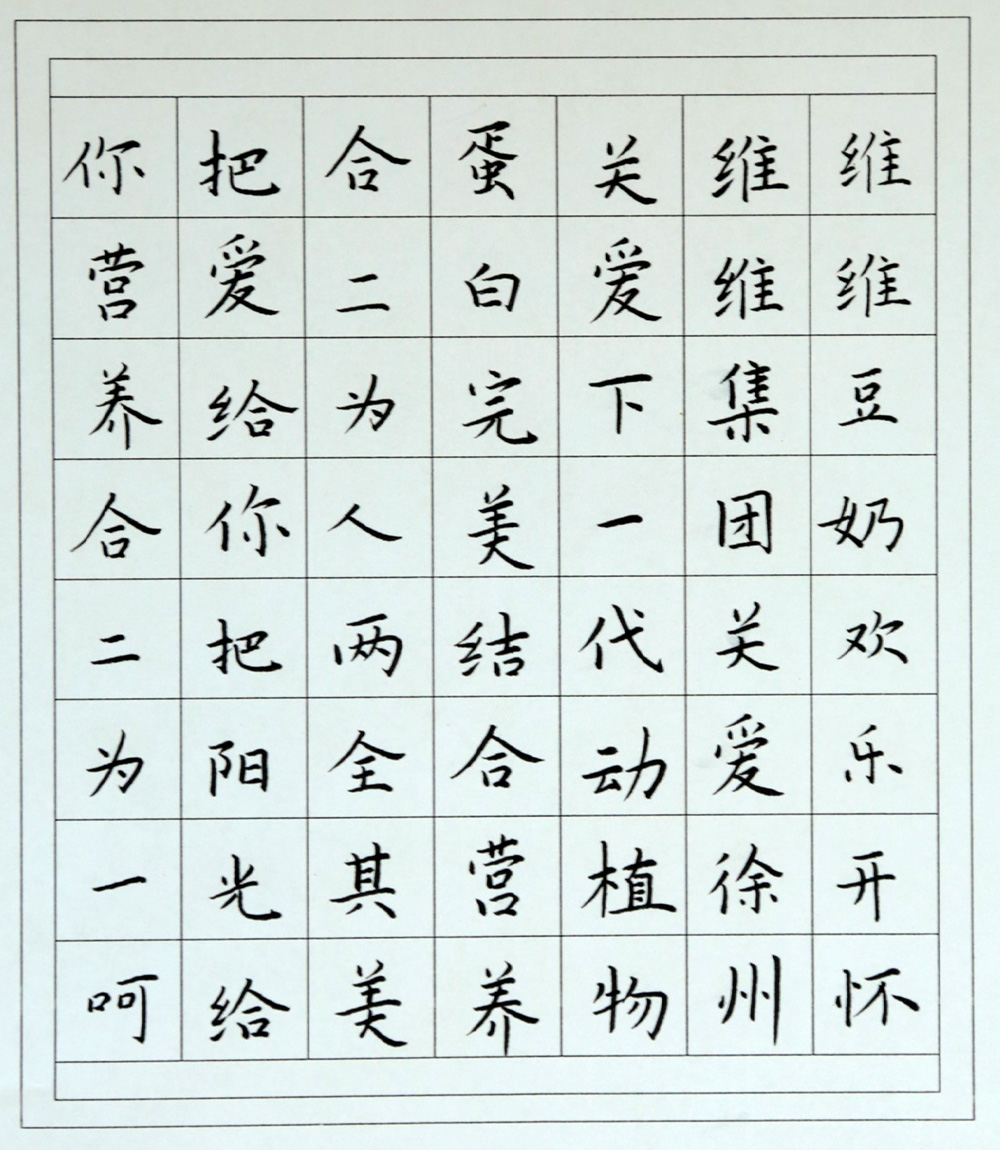 维维豆奶欢乐开怀
维维集团关爱徐州
关爱下一代动植物
蛋白完美结合营养
合二为人两全其美
把爱给你把阳光给
你营养合二为一呵